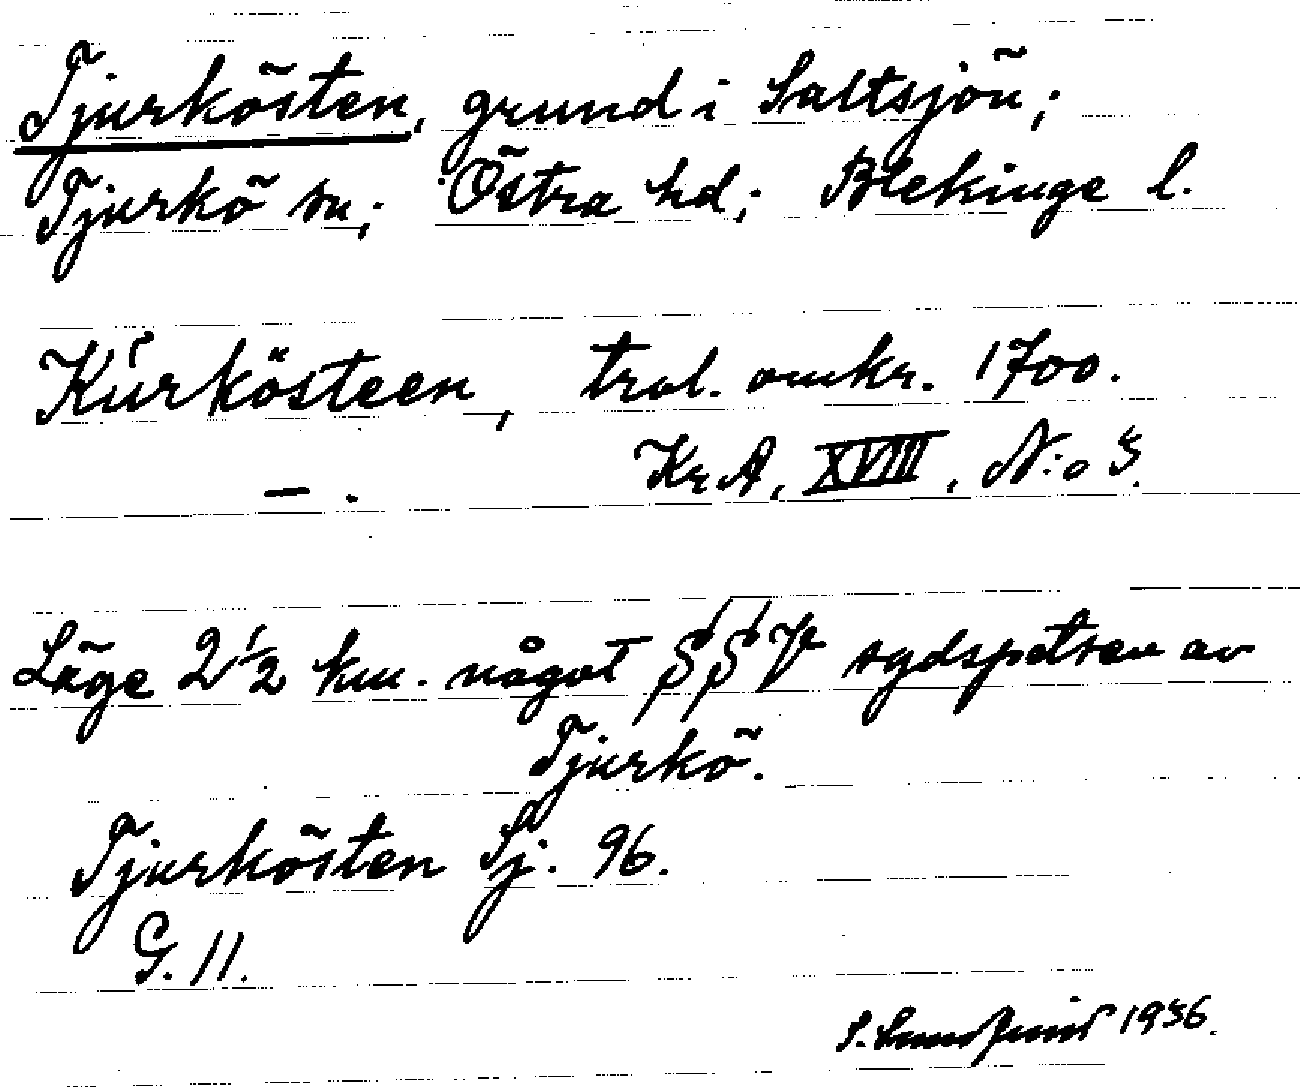 Tjurkösten, grund i Saltsjön;
Tjurkö sn; Östra hd; Blekinge l.
Kúrkösteen, trol. omkr. 1700.
— . Kr.A, XVIII, N:o 5.
Läge 2 1/2 km. något SSV sydspetsen av
Tjurkö.
Tjurkösten Sj. 96.
G. 11.
1936.